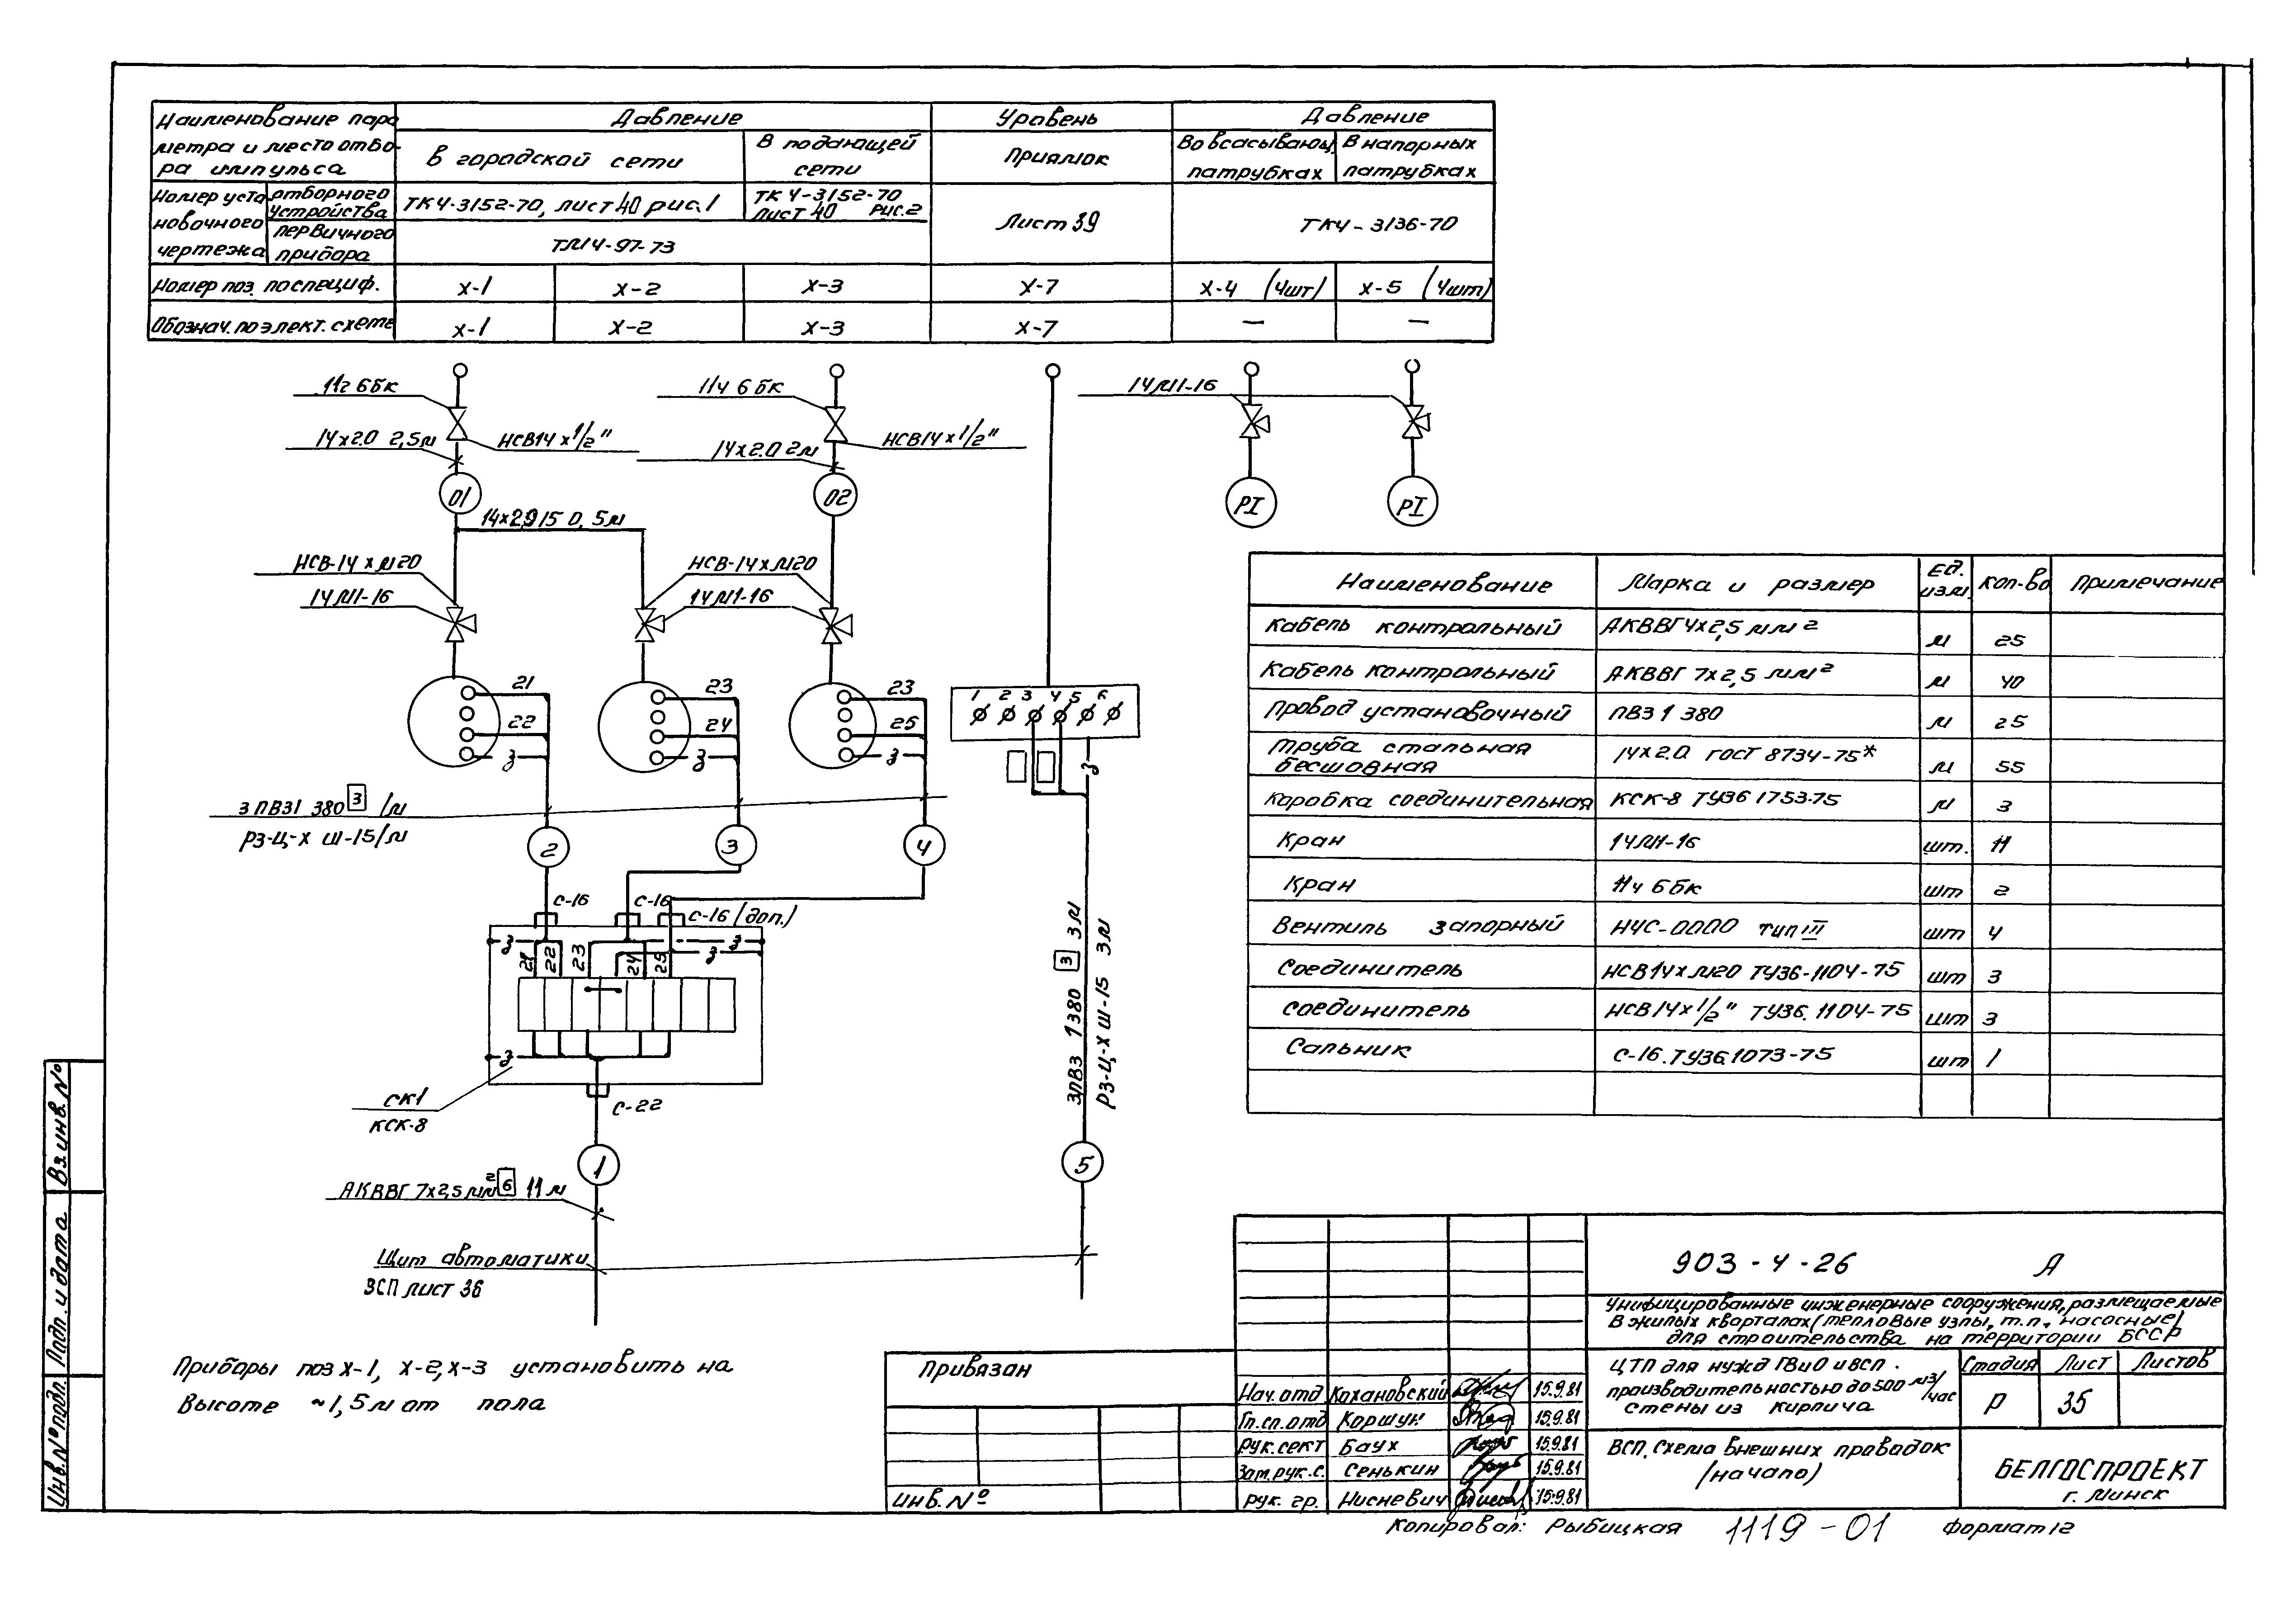 Наименование пара
метра и место отбо-
ра импульса
Давление
Уровень
Давление
В городской сети
В подающей
сети
Приямок
Во всасывающ.
патрубках
В напорных
патрубках
Номер уста
новочного
чертежа
отборного
устройства
первичного
прибора
ТК4-3152-70, лист 40 рис.1
ТК 4-3152-70
лист 40 рис.2
Лист 39
ТК4-3136-70
ТМ14-97-73
Номер поз. по специф.
Х-1
Х-2
Х-3
Х-7
Х-4 (4шт)
Х-5 (4шт)
Обознач. по элект. схеме
Х-1
Х-2
Х-3
Х-7
—
—
11г 6бк
11ч 6 бк
14М1-16
14х2.0 2,5м
НСВ14 х 1/2"
14х2.0 2м
НСВ14 х 1/2"
01
02
PI
PI
НСВ-14 х М20
НСВ-14хМ20
14М1-16
14М1-16
21
22
З
23
24
З
23
25
З
1 2 3 4 5 6
З
3 ПВ31 380 3 1м
РЗ-Ц-Х Ш-15 1м
2
3
4
С-16
С-16
С-16 (доп.)
З
З
З
21
22
23
24
25
З
СК1
КСК-8
С-22
3ПВ3 1380 3 3м
РЗ-Ц-Х Ш-15 3м
1
5
АКВВГ 7х2,5 мм² 6 11 м
Щит автоматики
ВСП лист 36
Приборы поз Х-1, Х-2, Х-3 установить на
высоте ~1,5м от пола
Наименование
Марка и размер
Ед.
изм.
Кол-во
Примечание
Кабель контрольный АКВВГ4х2,5 мм² м 25
Кабель контрольный АКВВГ 7х2,5 мм² м 40
Провод установочный ПВ3 1 380 м 25
Труба стальная
бесшовная
14х2.0 ГОСТ 8734-75* м 55
Коробка соединительная КСК-8 ТУ36 1753-75 м 3
Кран 14М1-16 шт. 11
Кран 11ч 6 бк шт 2
Вентиль запорный тип III шт 4
Соединитель НСВ14х М20 ТУ36-1104-75 шт 3
соединитель НСВ 14х1/2" ТУ36.1104-75 шт 3
Сальник С-16.ТУ36.1073-75 шт 1
903-4-26 А
Унифицированные инженерные сооружения, размещаемые
в жилых кварталах (тепловые узлы, т.п., насосные)
для строительства на территории БССР
ЦТП для нужд ГВиО и ВСП.
производительностью до 500 м3/час
стены из кирпича
Стадия
Лист
Листов
Р
35
ВСП. Схема внешних проводок
(начало)
БЕЛГОСПРОЕКТ
г. Минск
Привязан
Инв. №
Нач. отд Кохановский 15.9.81
Гл. сп. отд Коршук 15.9.81
Рук. сект Баух 15.9.81
Зам. рук. с. Сенькин 15.9.81
рук. гр. Нисневич 15.9.81
Копировал: Рыбицкая 1119-01 Формат 12
Вз. инв. №
Подп. и дата
Инв. № подл.